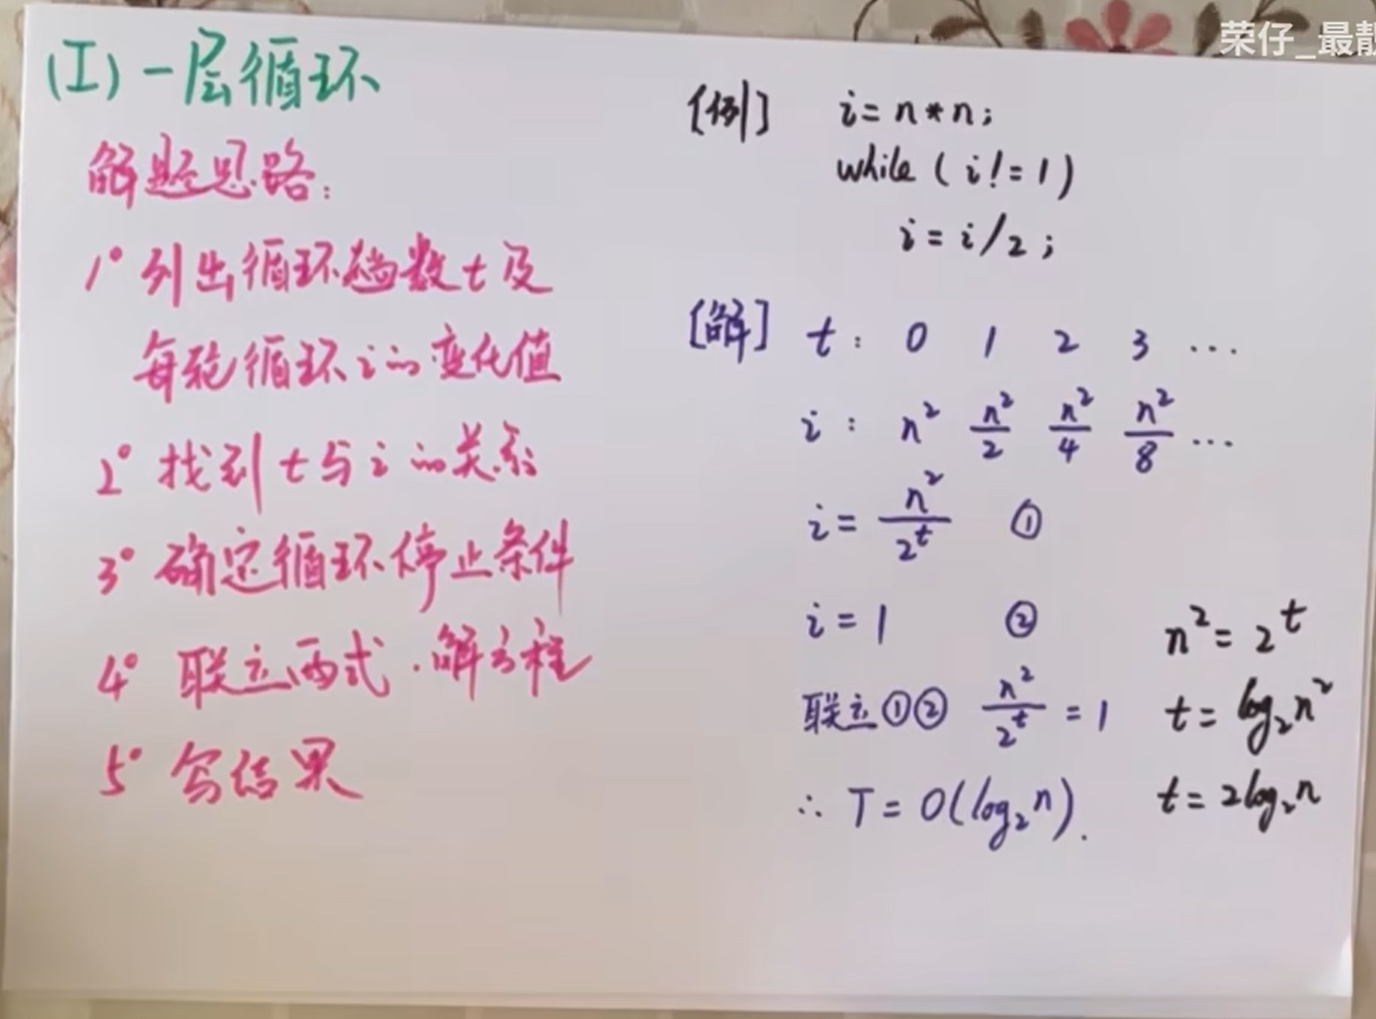 荣仔_最靓
(I) 一层循环
解题思路:
1° 列出循环趟数t及
每轮循环i的变化值
2° 找到t与i的关系
3° 确定循环停止条件
4° 联立两式.解方程
5° 写结果
[例] i = n * n;
while ( i != 1 )
i = i/2;
[解] t: 0 1 2 3 ...
i: n² n²/2 n²/4 n²/8 ...
i = n²/2^t ①
i = 1 ②
联立①② n²/2^t = 1
∴ T = O(log₂n).
n² = 2^t
t = log₂n²
t = 2log₂n